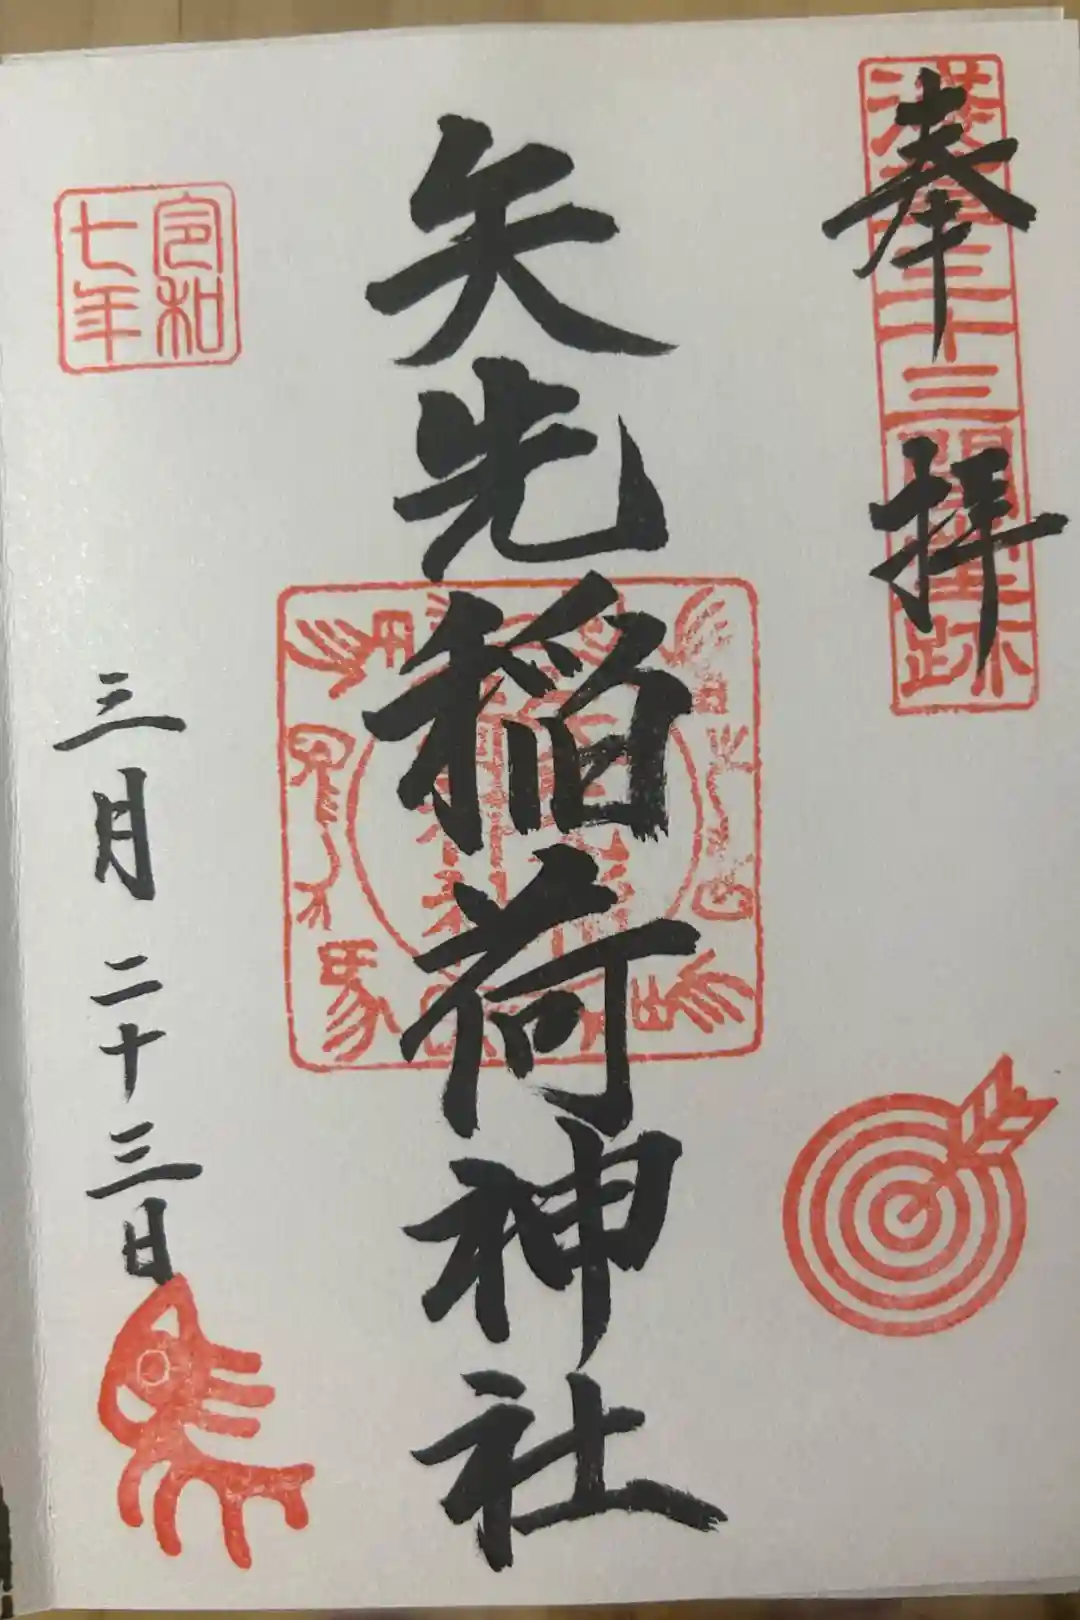 奉拝
浅草三十三間堂跡
矢先稲荷神社
令和
七年
三月二十三日